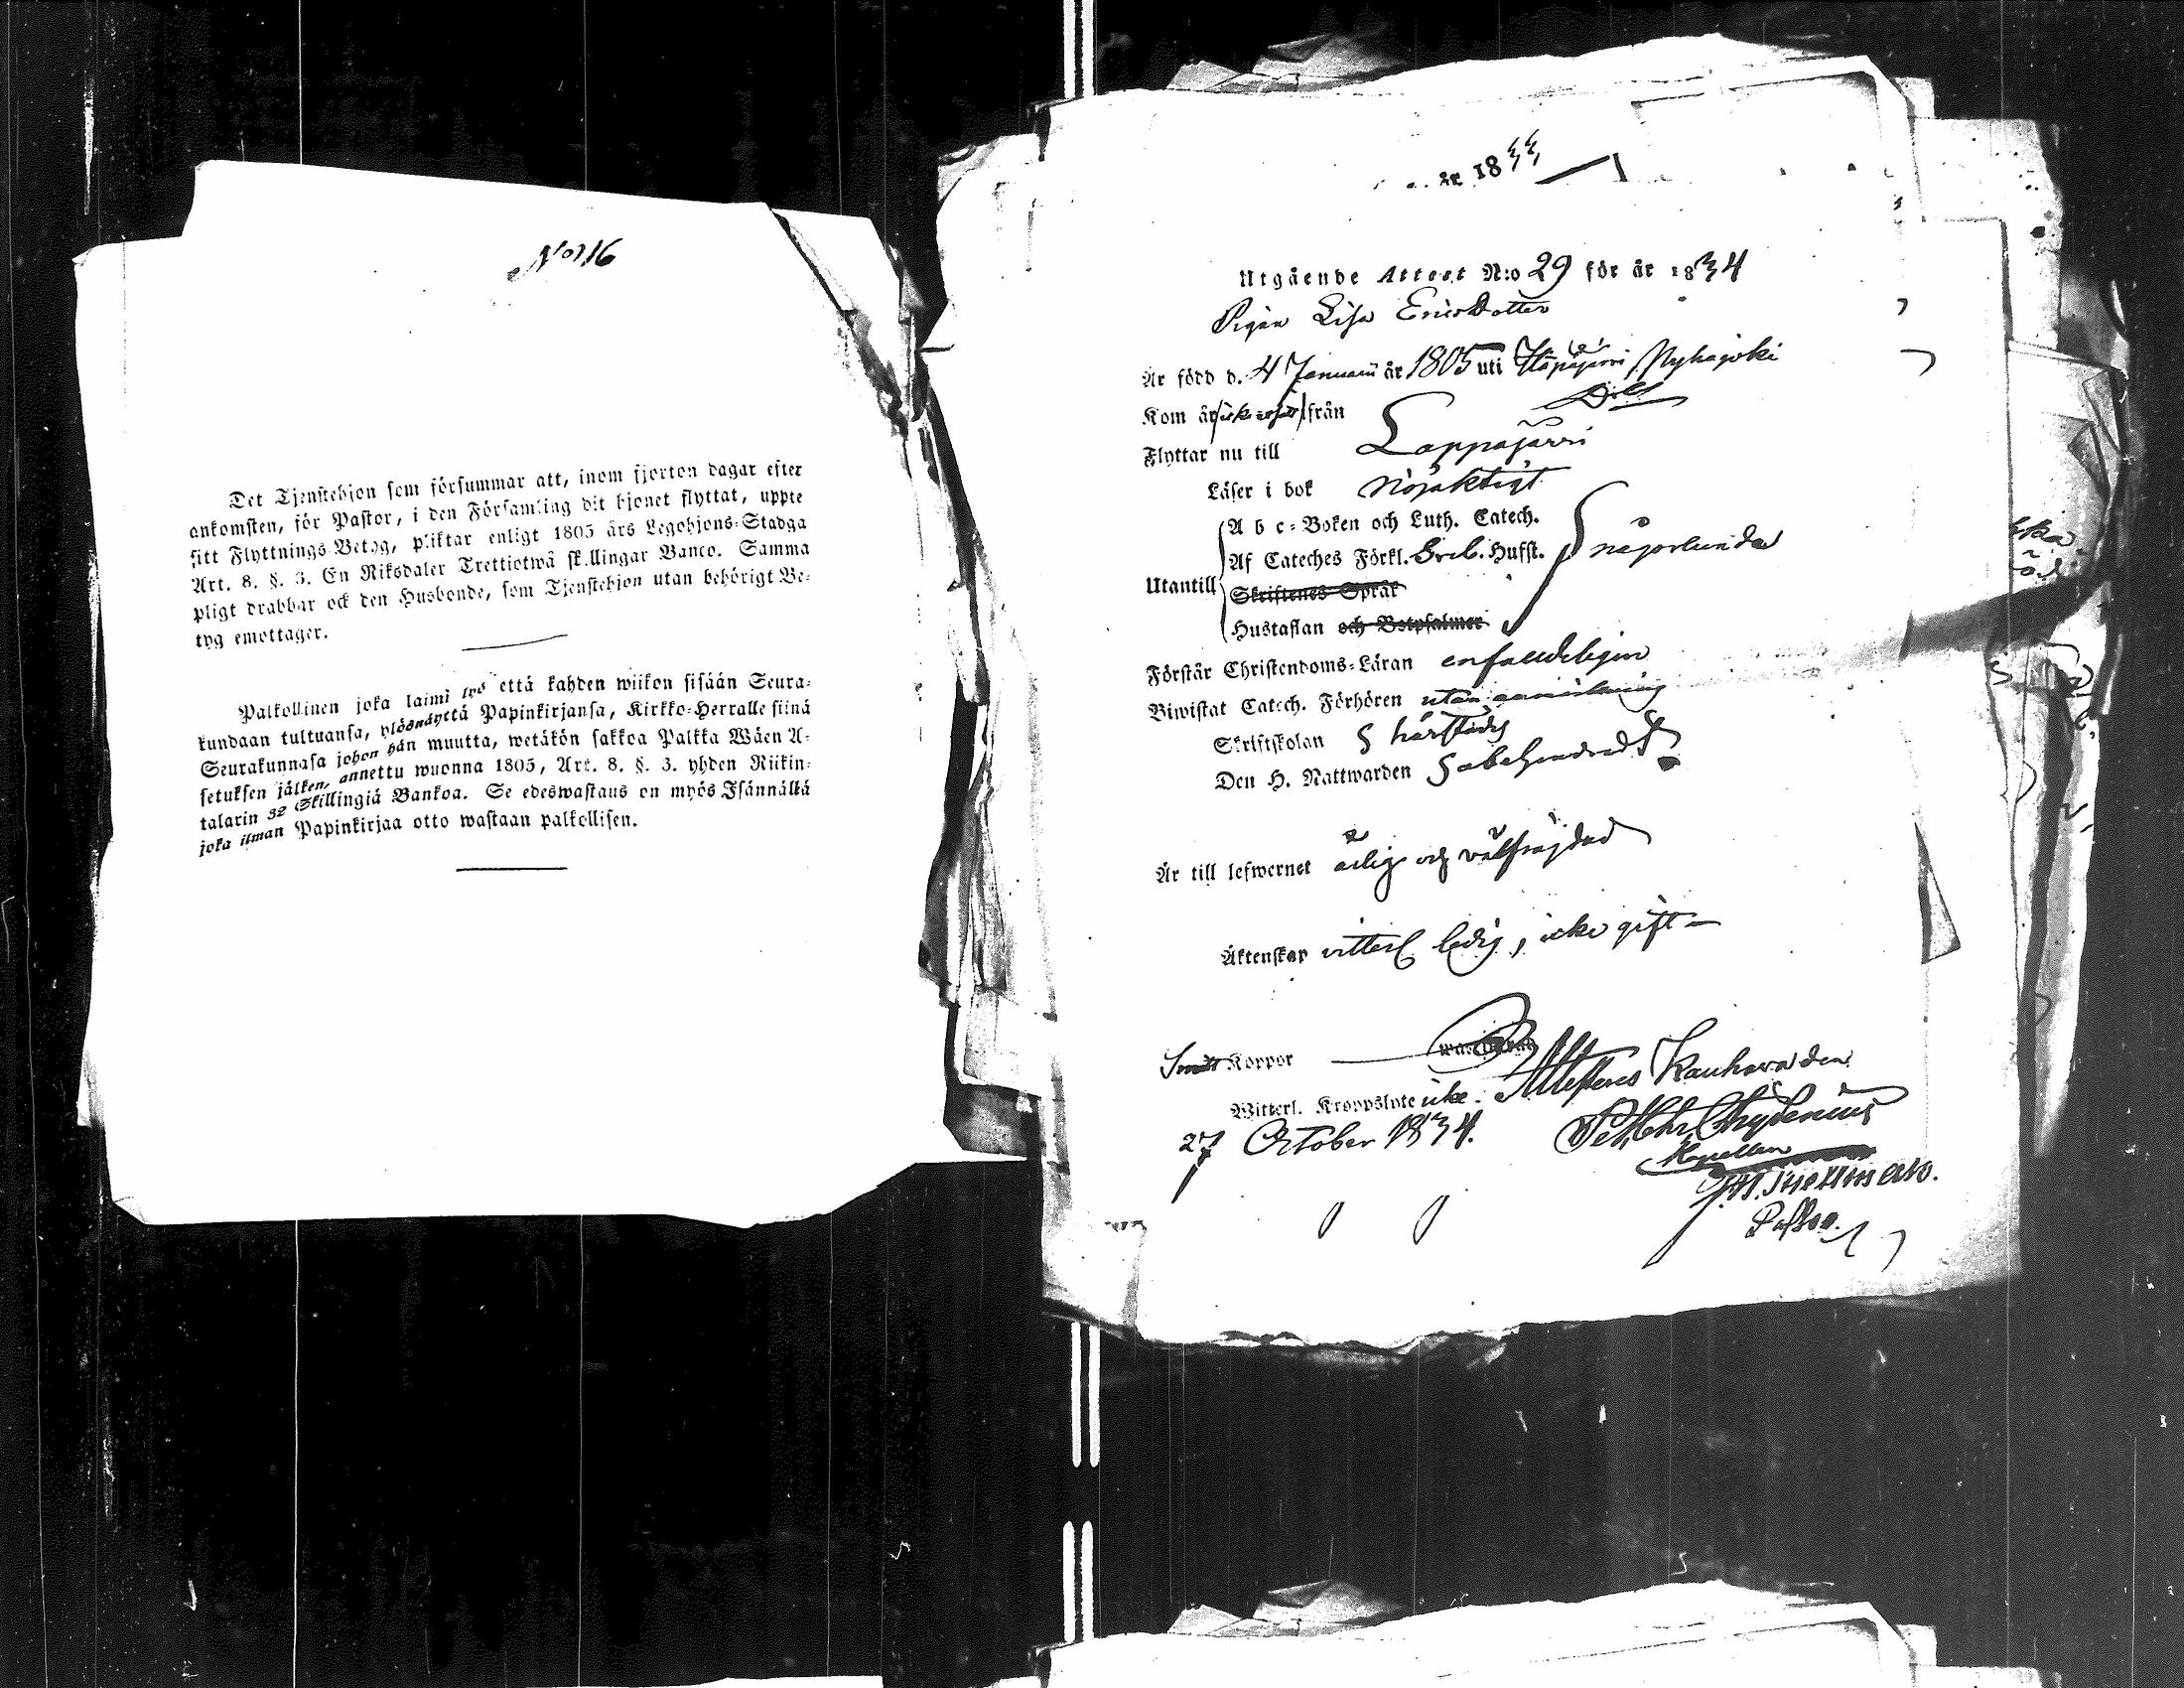 No 116
Det Tjenstehjon som försummar att, inom fjorton dagar efter
ankomsten, för Pastor, i den Församling dit hjonet flyttat, uppte
sitt Flyttnings-Betyg, pliktar enligt 1805 års Legohjons-Stadga
Art. 8. §. 3. En Riksdaler Trettiotwå skillingar Banco. Samma
pligt drabbar ock den Husbonde, som Tjenstehjon utan behörigt Be-
tyg emottager.
Palkollinen joka laimi lyö että kahden wiikon sisään Seura-
kundaan tultuansa, ylösnäyttä Papinkirjansa, Kirkko-Herralle siinä
Seurakunnasa johon hän muutta, wetäkön sakkoa Palkka Wäen A-
setuksen jälken, annettu wuonna 1805, Art. 8. §. 3. yhden Riikin-
talarin 32 Skillingiä Bankoa. Se edeswastaus on myös Isännällä
joka ilman Papinkirjaa otto wastaan palkollisen.
år 18
Utgående Attest N:o 29 för år 1834
Pigan Lisa Ericsdotter
Är född d. 4 Januarii år 1805 uti
Kom år från
Flyttar nu till Lappajärvi
Läser i bok nöjaktigt
A b c-Boken och Luth. Catech.
Af Cateches Förkl. Sveb. Hufst. någorlunda
Utantill Skriftenes Språk
Hustaflan och Botpsalmer
Förstår Christendoms-Läran enfaldeligen
Biwistat Catech. Förhören utan anmärkning
Skriftskolan härstädes
Den H. Nattwarden
Är till lefwernet ärlig och välfrejdad
Äktenskap vitterl. ledig, icke gift
Koppor
Witterl. Kroppslyte icke. Attesteras Kauhava den
27 October 1834. Chydenius
Kapellan
Pastor.